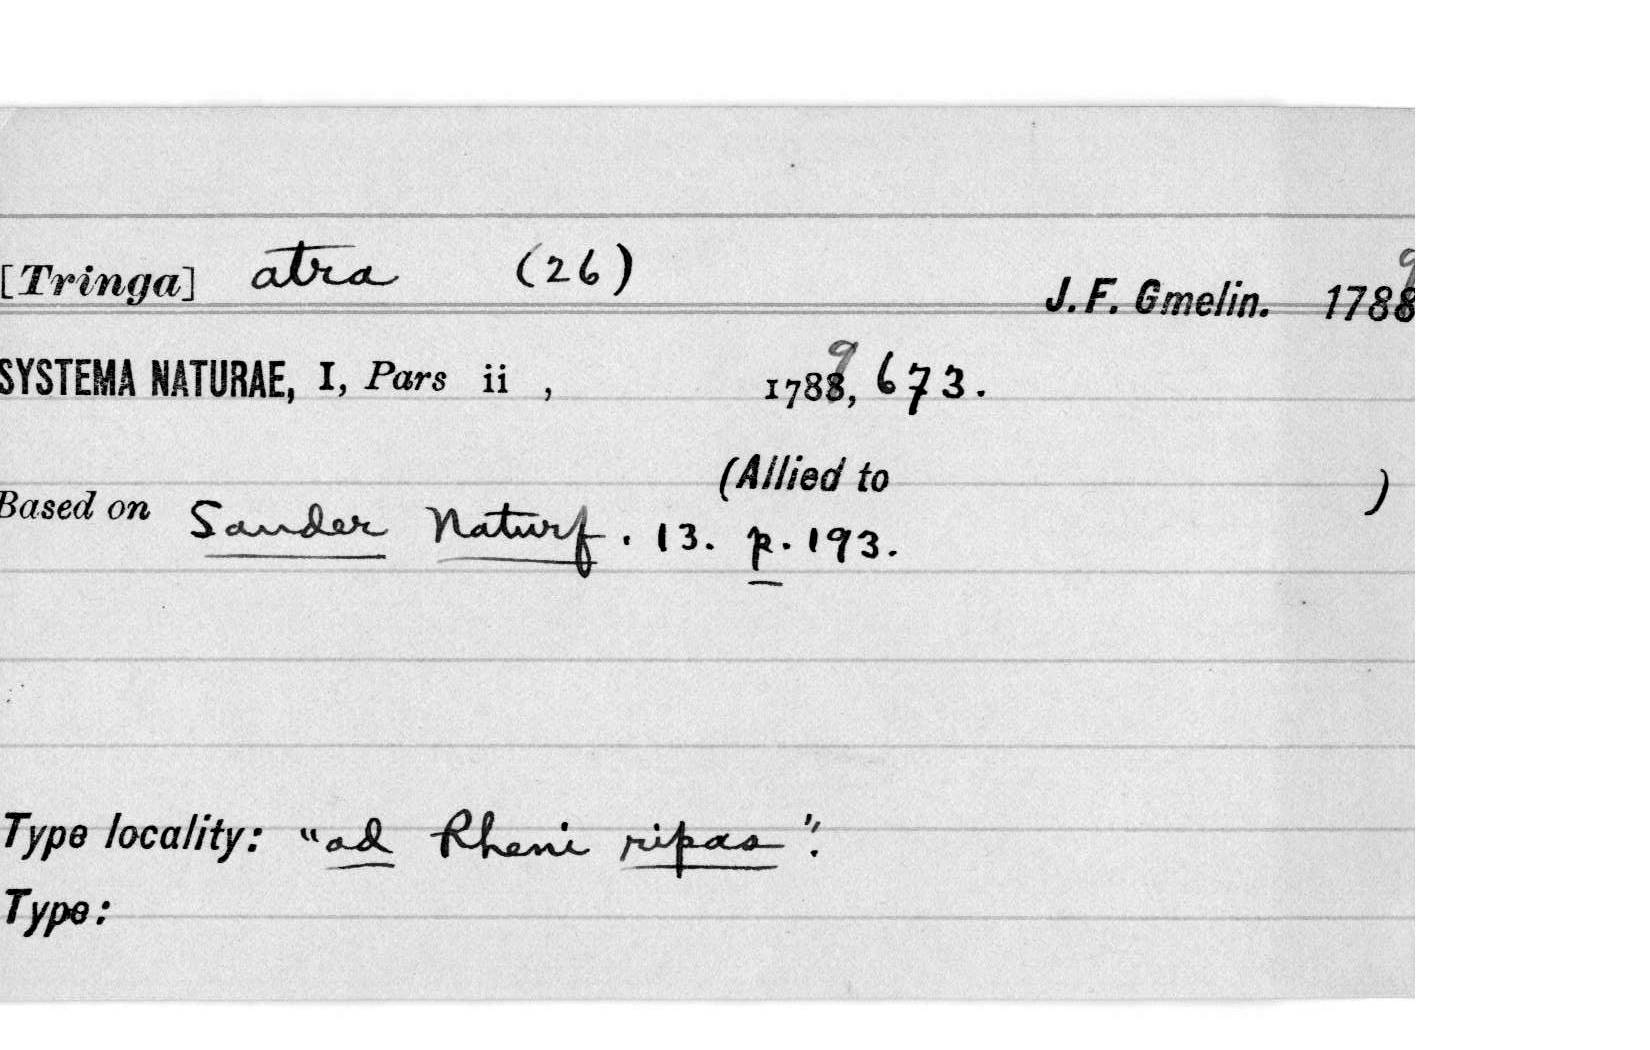 [Tringa] atra (26)
J. F. Gmelin. 1788 9
SYSTEMA NATURAE, I, Pars ii , 1788 9, 673.
(Allied to )
Based on Sander Naturf. 13. p. 193.
Type locality: "ad Rheni ripas".
Type: